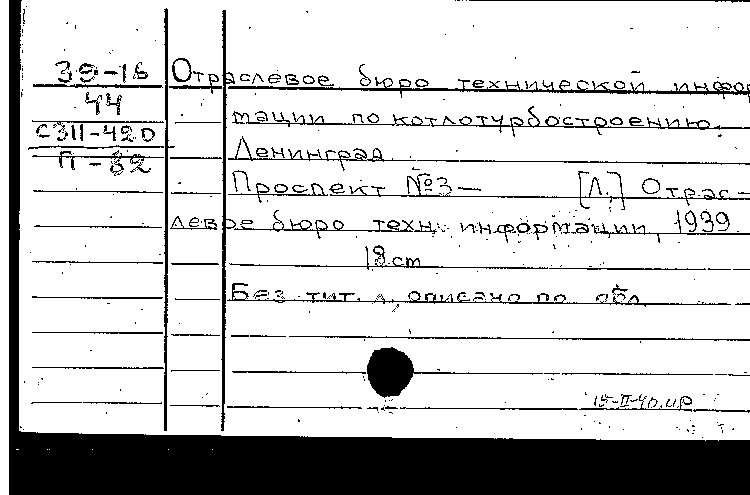 39-16
44
С311-420
П-82
Отраслевое бюро технической инфор
тации по котлотурбостроению.
Ленинград
Проспект №3— [Л.] Отрас-
левое бюро техн. информации, 1939
18 cm
Без тит. л., описано по обл.
15-II-40.